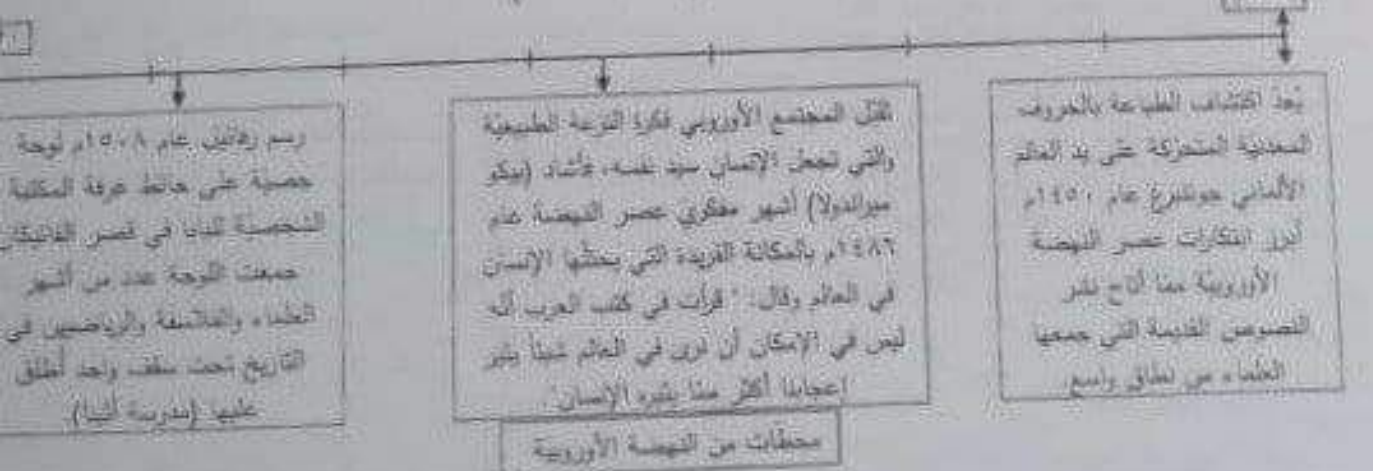 يُعدّ اكتشاف الطباعة بالحروف
المعدنية المتحركة على يد العالم
الألماني جوتنبرغ عام ١٤٥٠م
أبرز ابتكارات عصر النهضة
الأوروبيّة ممّا أتاح نشر
النصوص القديمة التي جمعها
العلماء من نطاق واسع.
تقبّل المجتمع الأوروبي فكرة النزعة الطبيعيّة
والتي تجعل الإنسان سيد نفسه، فأشاد (بيكو
ميراندولا) أشهر مفكري عصر النهضة عام
١٤٨٦م بالمكانة الفريدة التي يحتلّها الإنسان
في العالم وقال: "قرأت في كتب العرب أنّه
ليس في الإمكان أن نرى في العالم شيئاً يثير
إعجابنا أكثر ممّا يثيره الإنسان".
رسم رفائيل عام ١٥٠٨م لوحة
جصية على حائط غرفة المكتبة
الشخصيّة للبابا في قصر الفاتيكان
جمعت اللوحة عدد من أشهر
العلماء والفلاسفة والرياضيين في
التاريخ تحت سقف واحد أطلق
عليها (مدرسة أثينا).
محطّات من النهضة الأوروبية